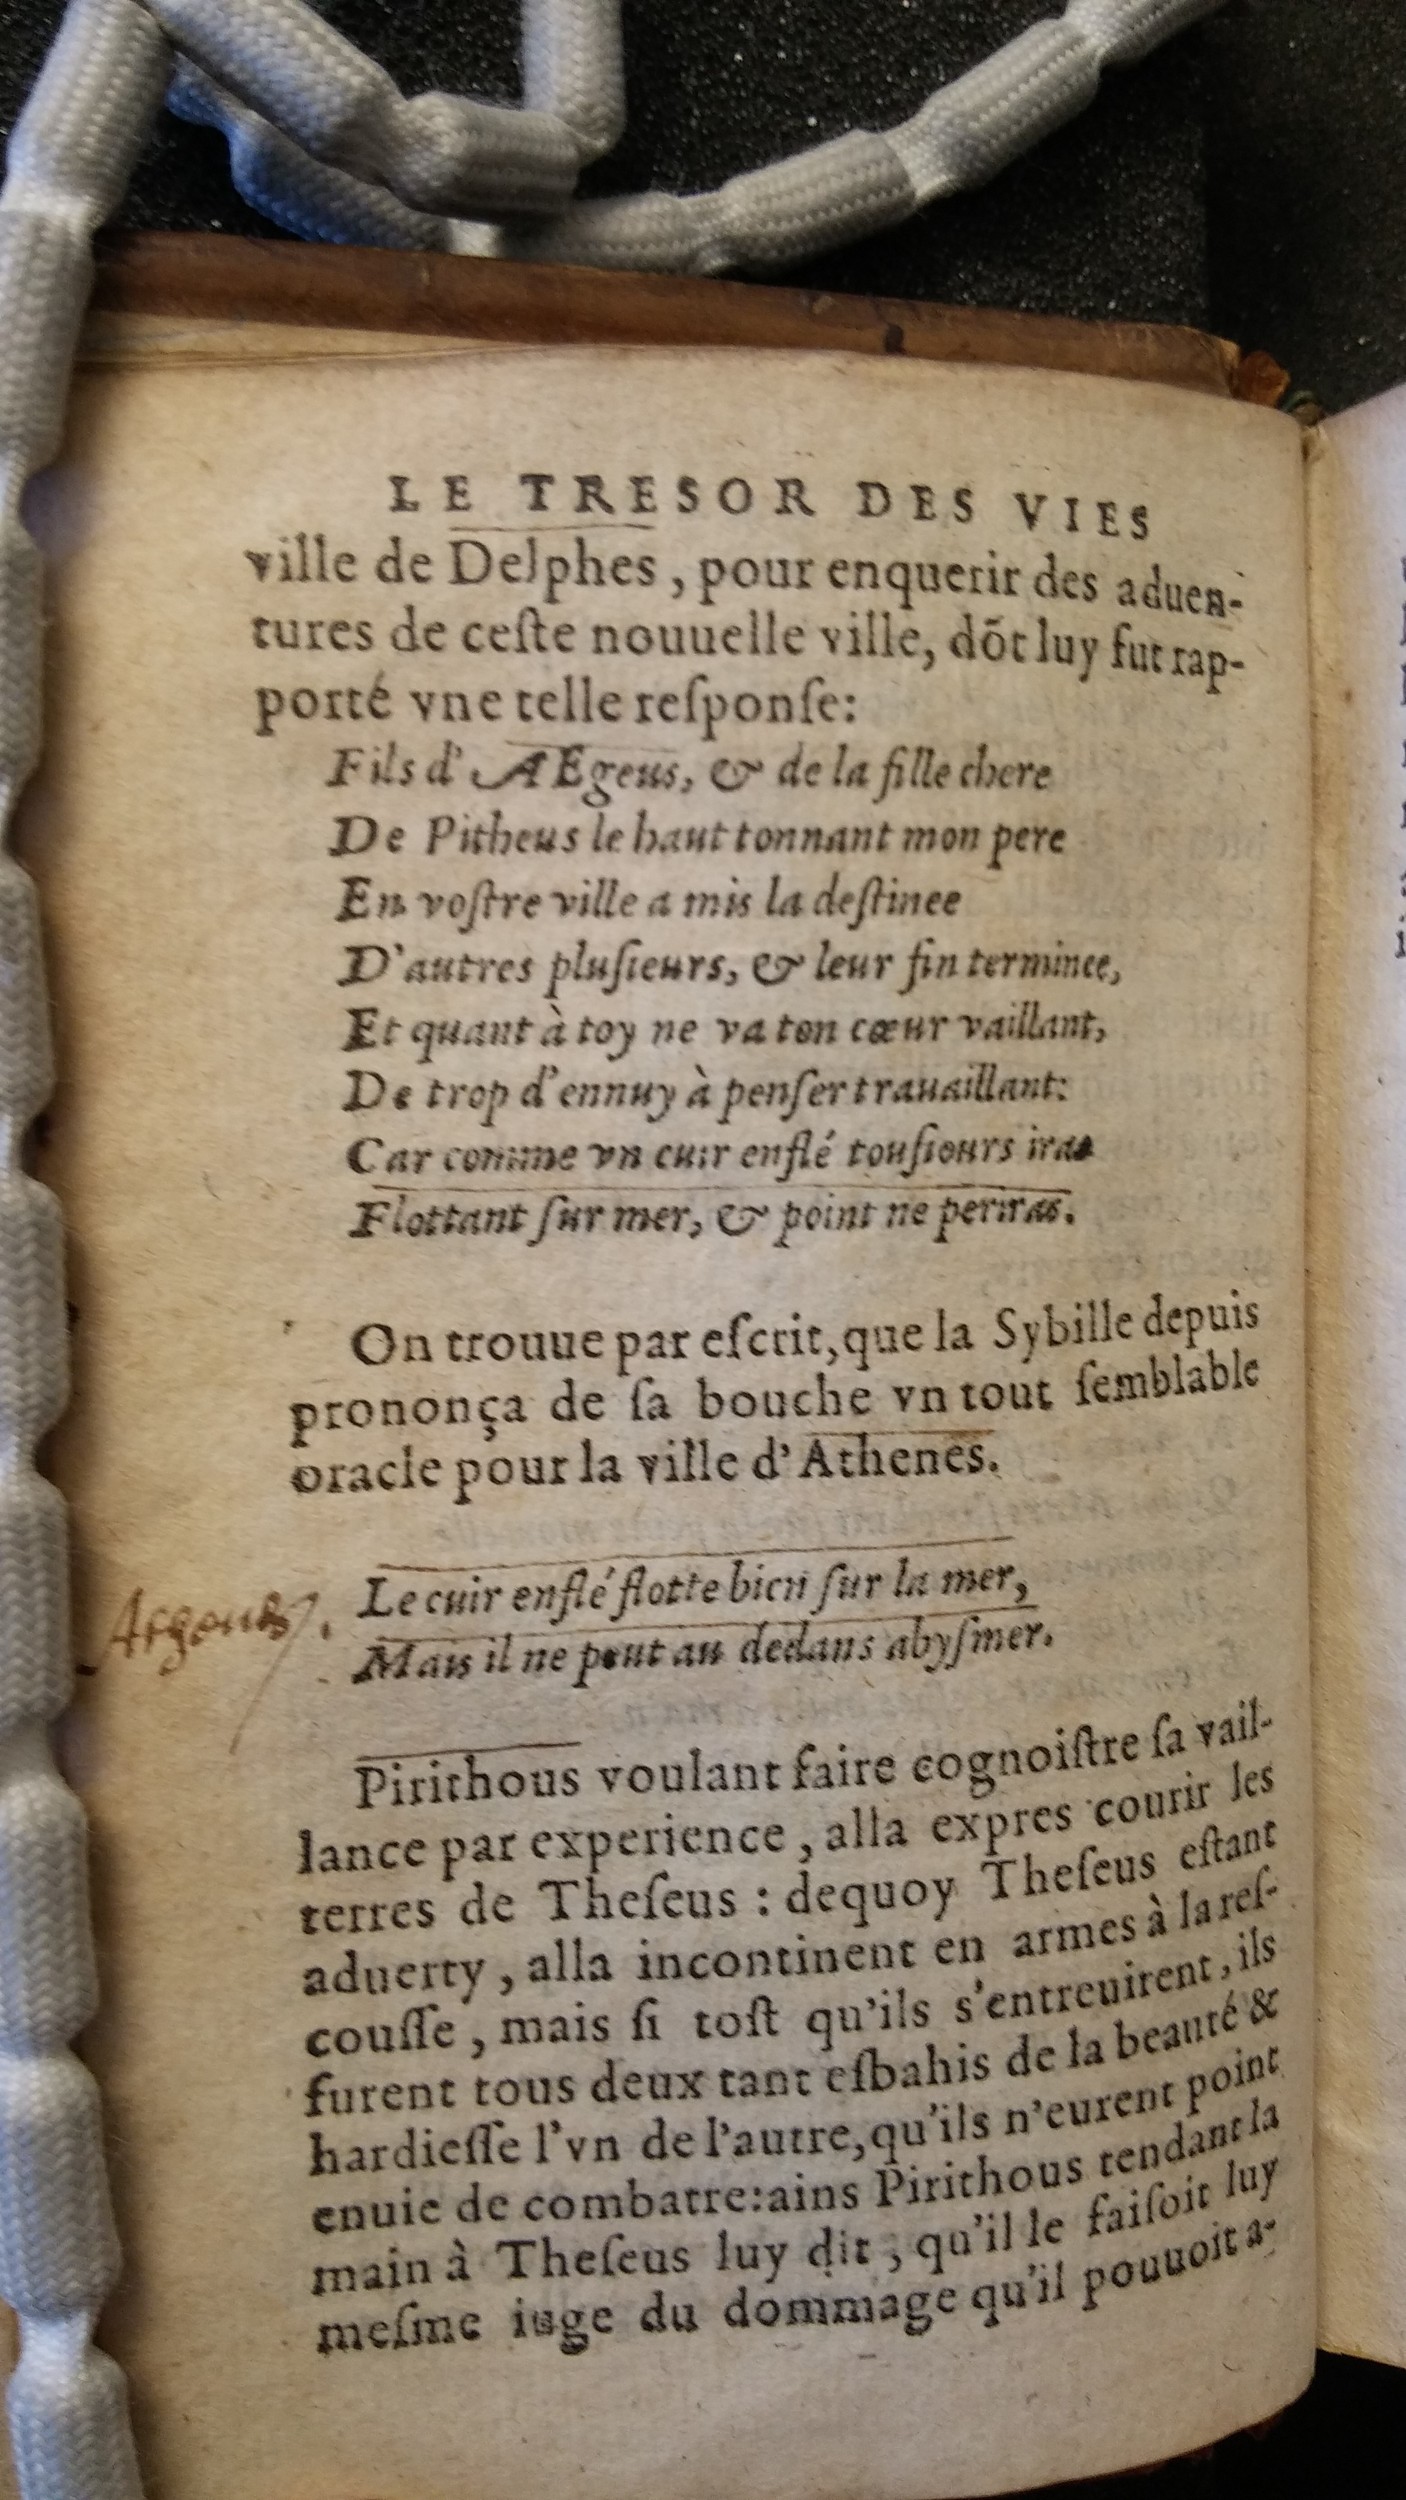 LE TRESOR DES VIES
ville de Delphes, pour enquerir des aduen-
tures de ceſte nouuelle ville, dõt luy fut rap-
porté vne telle reſponſe:
Fils d' AEgeus, & de la fille chere
De Pitheus le haut tonnant mon pere
En voſtre ville a mis la deſtinee
D'autres pluſieurs, & leur fin terminee,
Et quant à toy ne va ton cœur vaillant,
De trop d'ennuy à penſer trauaillant:
Car comme vn cuir enflé touſiours iras
Flottant ſur mer, & point ne periras.
On trouue par eſcrit, que la Sybille depuis
prononça de ſa bouche vn tout ſemblable
oracle pour la ville d'Athenes.
Le cuir enflé flotte bien ſur la mer,
Mais il ne peut au dedans abyſmer.
Pirithous voulant faire cognoiſtre ſa vail-
lance par experience, alla expres courir les
terres de Theſeus : dequoy Theſeus eſtant
aduerty, alla incontinent en armes à la reſ-
couſſe, mais ſi toſt qu'ils s'entreuirent, ils
furent tous deux tant eſbahis de la beauté &
hardieſſe l'vn de l'autre, qu'ils n'eurent point
enuie de combatre: ains Pirithous tendant la
main à Theſeus luy dit, qu'il le faiſoit luy
meſme iuge du dommage qu'il pouuoit a-